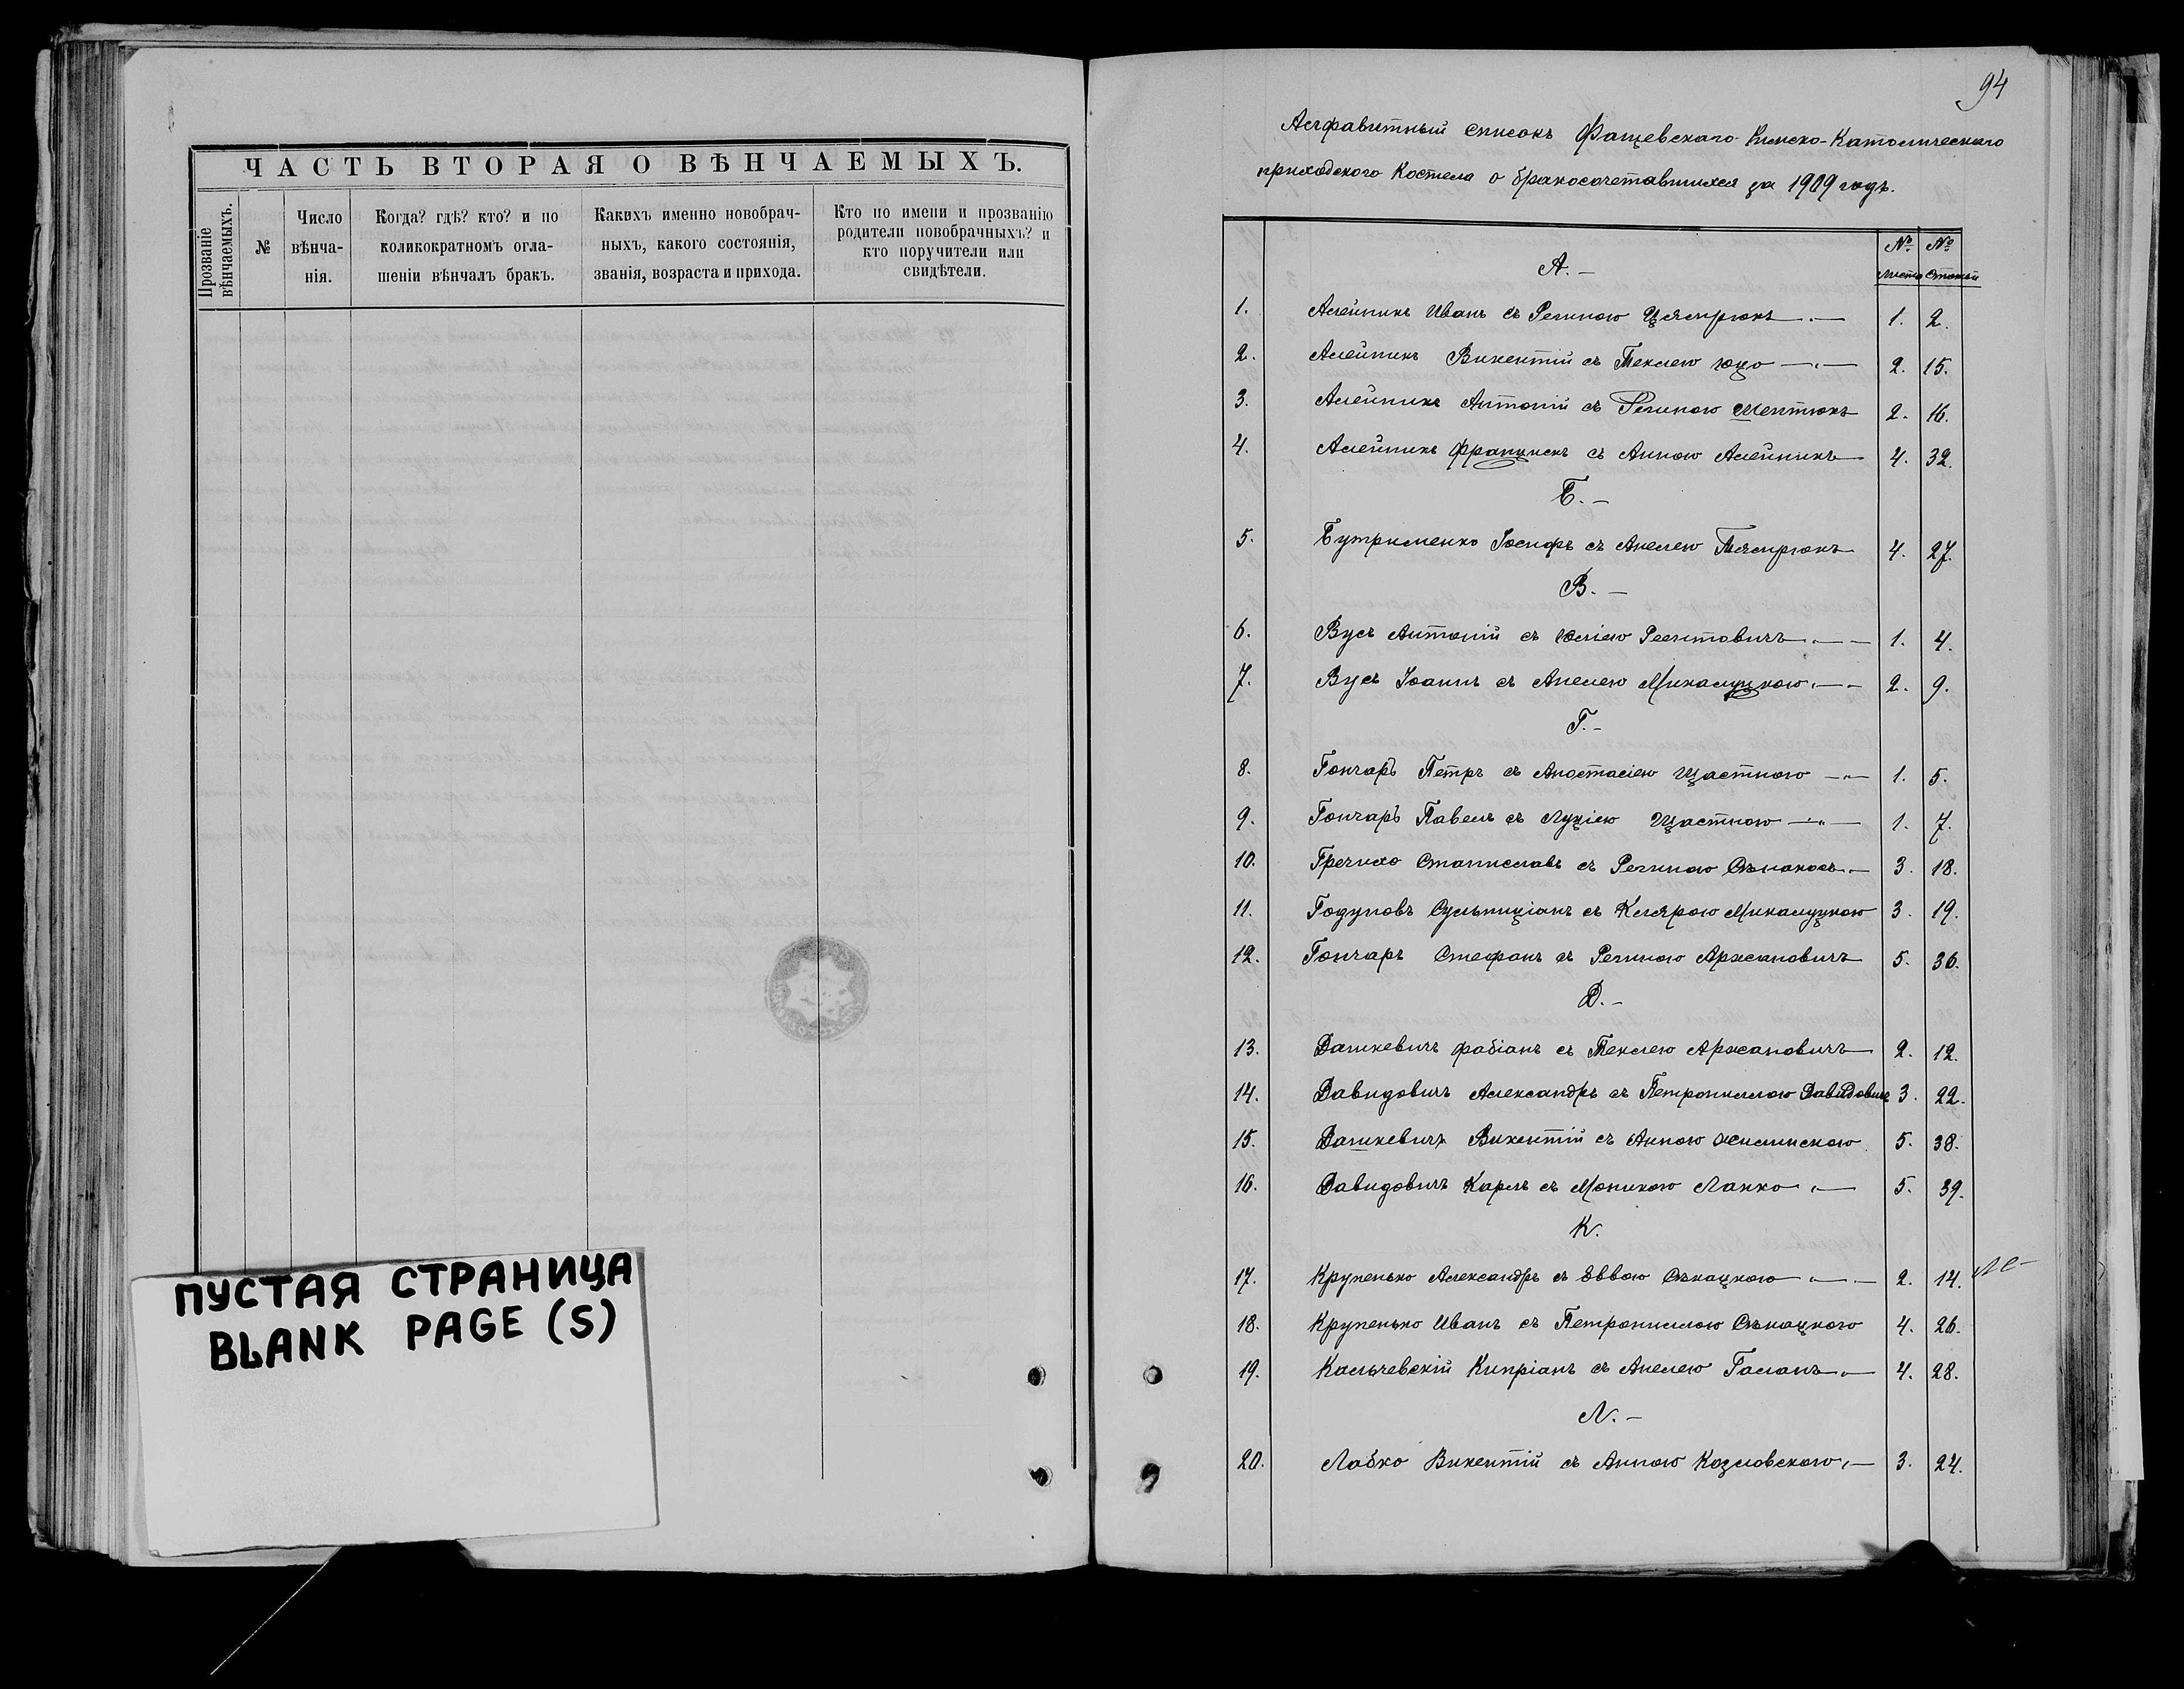 ЧАСТЬ ВТОРАЯ О ВѢНЧАЕМЫХЪ.
Прозваніе вѣнчаемыхъ.
№
Число вѣнча-
нія.
Когда? гдѣ? кто? и по
коликократномъ огла-
шеніи вѣнчалъ бракъ.
Какихъ именно новобрач-
ныхъ, какого состоянія,
званія, возраста и прихода.
Кто по имени и прозванію
родители новобрачныхъ? и
кто поручители или
свидѣтели.
ПУСТАЯ СТРАНИЦА
BLANK PAGE (S)
94
Алфавитный списокъ Фащевскаго Римско-Католическаго
приходского Костела о бракосочетавшихся за 1909 годъ.
№ листа № статьи
А.-
1. Алейникъ Иванъ съ Региною 1. 2.
2. Алейникъ Викентій съ Теклею Юцо 2. 15.
3. Алейникъ Антоній съ Региною Шентюкъ 2. 16.
4. Алейникъ Францискъ съ Анною Алейникъ 4. 32.
Б.-
5. Бутрименко Іосифъ съ Анелею 4. 27.
В.-
6. Вусъ Антоній съ Юліею Реентовичъ 1. 4.
7. Вусъ Іоаннъ съ Анелею Микалуцкою 2. 9.
Г.-
8. Гончаръ Петръ съ Анастасіею Щастною 1. 5.
9. Гончаръ Павелъ съ Луціею Щастною 1. 7.
10. Гречихо Станиславъ съ Региною 3. 18.
11. Годуновъ Сульпиціанъ съ Клярою Микалуцкою 3. 19.
12. Гончаръ Стефанъ съ Региною Аржановичъ 5. 36.
Д.-
13. Дашкевичъ Фабіанъ съ Теклею Аржановичъ 2. 12.
14. Давидовичъ Александръ съ Петронилею Давидовичъ 3. 22.
15. Дашкевичъ Викентій съ Анною Жилинскою 5. 38.
16. Давидовичъ Карлъ съ Моникою Лакко 5. 39.
К.
17. Крупенько Александръ съ Еввою Сѣкацкою 2. 14.
18. Крупенько Иванъ съ Петронилею Сѣкацкою 4. 26.
19. Кальчевскій Кипріанъ съ Анелею Галанъ 4. 28.
Л.-
20. Лабко Викентій съ Анною Козловскою 3. 24.